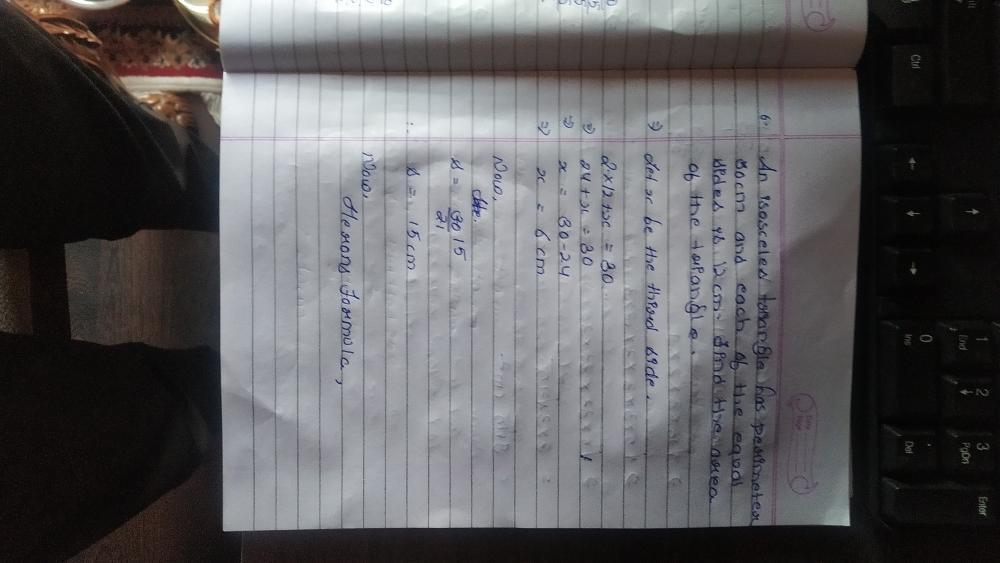 6. An isosceles triangle has perimeter
30cm and each of the equal
sides is 12cm. Find the area
of the triangle.
⇒ Let x be the third side.
2×12+x = 30
⇒ 24+x = 30
⇒ x = 30-24
⇒ x = 6cm
Now,
s = 30 15
21
∴ s = 15cm
Now,
Herons Formula,
Ctrl
0
Ins
1
End
2
3
PgDn
.
Del
Enter